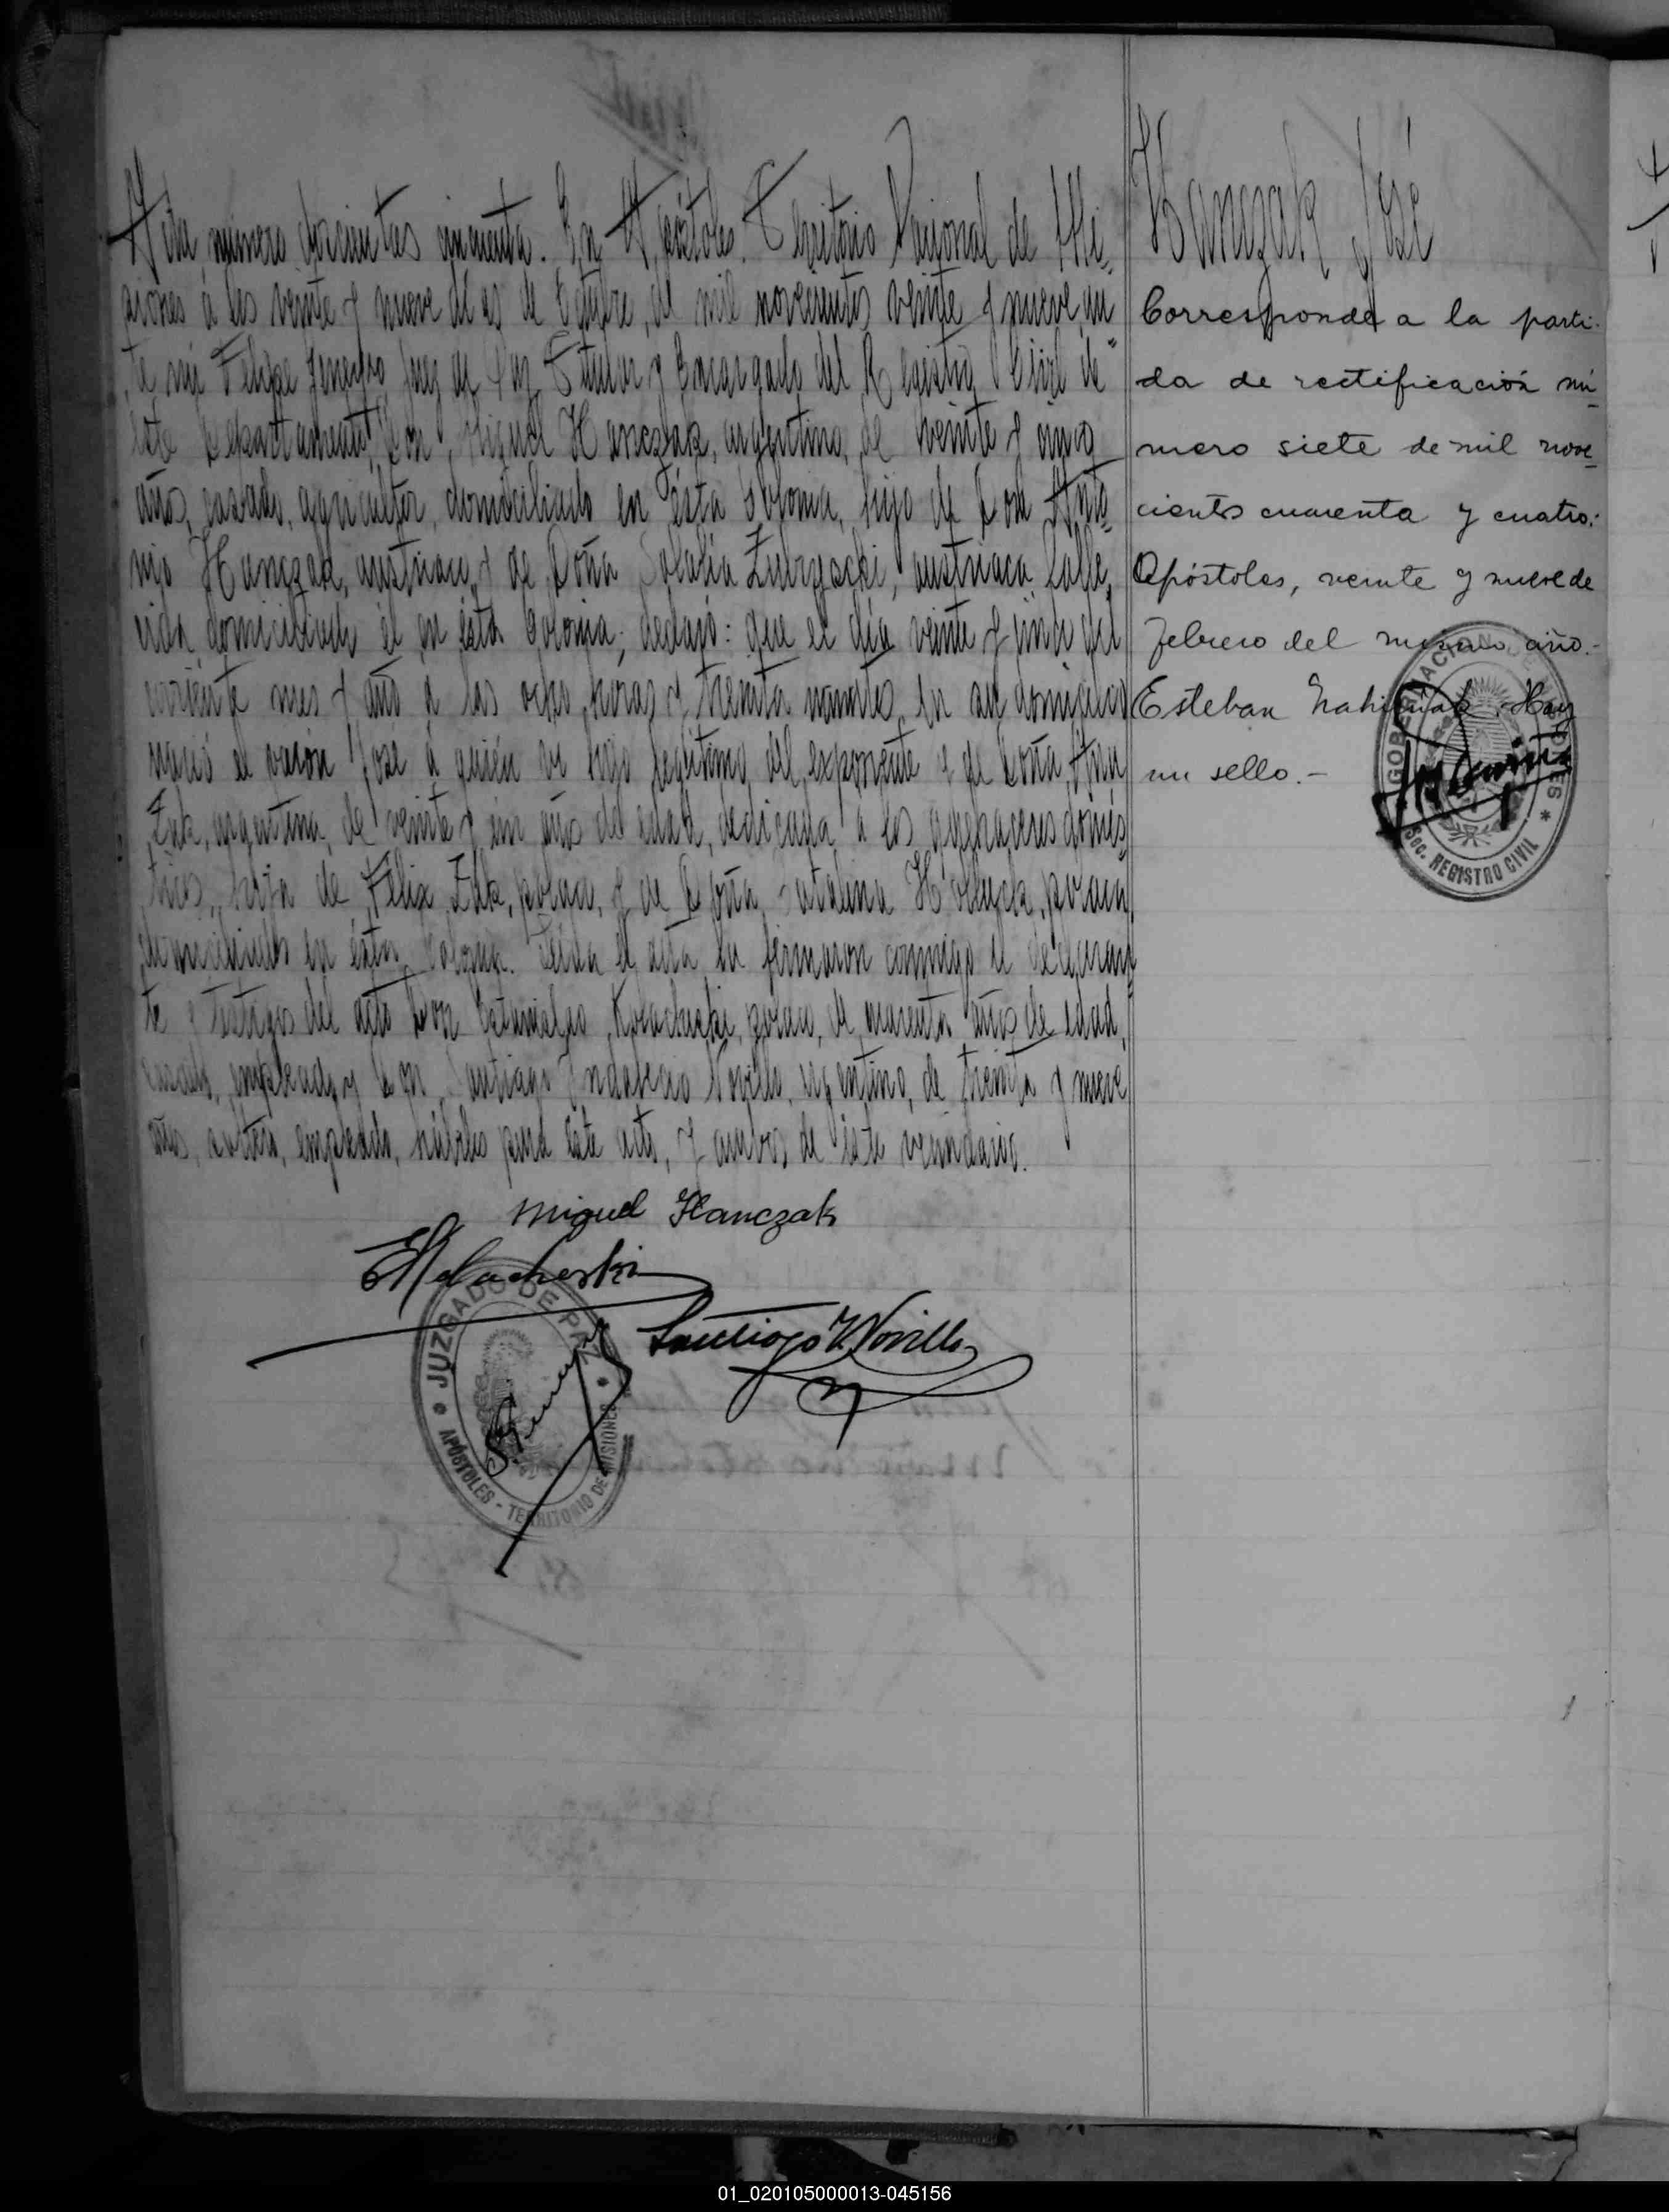 Acta número doscientos cincuenta. En Apóstoles Territorio Nacional de Mi-
siones á los veinte y nueve días de Octubre del mil novecientos veinte y nueve an-
te mí Felipe Juez de Paz Titular y Encargado del Registro Civil de
éste Departamento, Don Miguel Hanczak, argentino, de veinte y cinco
años, casado, agricultor, domiciliado en ésta Colonia, hijo de Don Anto-
nio Hanczak, austriaco, y de Doña austriaca, falle-
cida, domiciliado él en ésta Colonia; declaró: que el día veinte y cinco del
corriente mes y año á las ocho horas y treinta minutos, en su domicilio
nació el varón José á quién es hijo legítimo del exponente y de Doña Ana
Zuk, argentina, de veinte y un años del edad, dedicada á los quehaceres domés-
ticos, hija de Félix Zuk, polaco, y de Doña Catalina polaca,
domiciliados en ésta Colonia. Leída el acta la firmaron conmigo el declaran-
te y testigos del acto Don Kolacheski, polaco, de cuarenta años de edad,
casado, empleado y Don Santiago Indalecio Novillo, argentino, de treinta y nueve
años, soltero, empleado, hábiles para éste acto, y ambos de éste vecindario.
Miguel Hanczak
EKolacheski
Santiago I. Novillo
JUZGADO DE PAZ
APÓSTOLES - TERRITORIO DE MISIONES
Hanczak José
Corresponde a la parti-
da de rectificación nú-
mero siete de mil nove-
cientos cuarenta y cuatro.-
Apóstoles, veinte y nueve de
febrero del mismo año.-
Esteban Hay
un sello.-
GOBERNACION DE MISIONES
Sec. REGISTRO CIVIL
01_020105000013-045156